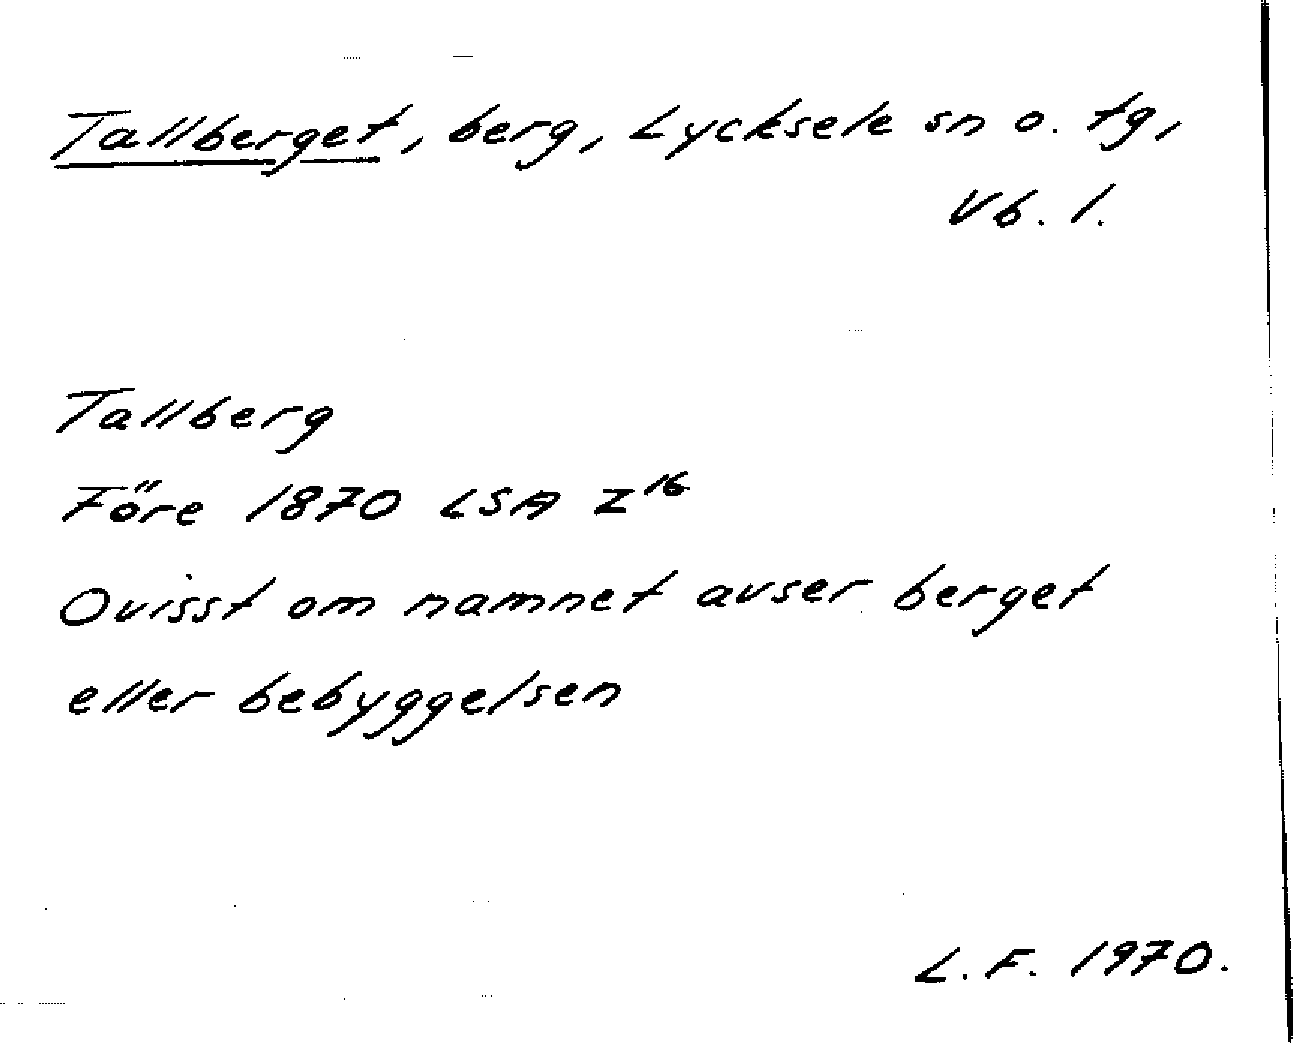 Tallberget, berg, Lycksele sn o. tg,
Vb. l.
Tallberg
Före 1870 LSA Z¹⁶
Ovisst om namnet avser berget
eller bebyggelsen
L. F. 1970.